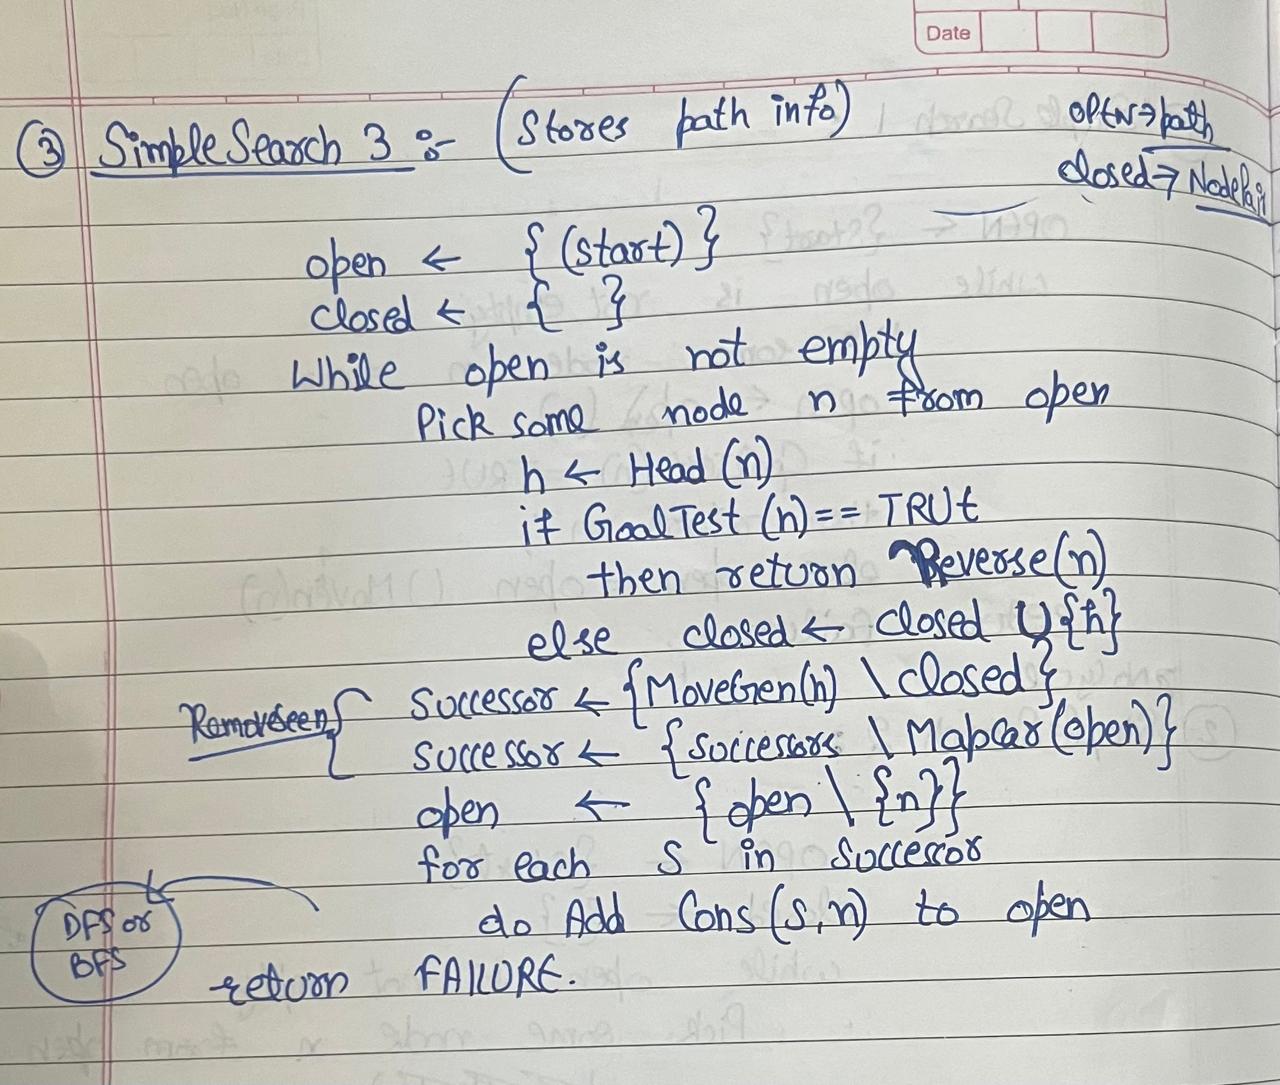 Date
③ SimpleSearch 3 :- (Stores path info)
open → path
closed → NodePair
open ← { (start) }
closed ← { }
While open is not empty
Pick some node n from open
h ← Head (n)
if GoalTest (h) == TRUE
then return Reverse(n)
else closed ← closed ∪ {h}
RemoveSeen { Successor ← {MoveGen(h) \ closed}
Successor ← {Successors \ Mapcar(open)}
open ← { open \ {n}}
for each S in Successor
do Add Cons (S,n) to open
DFS or
BFS
return FAILURE.